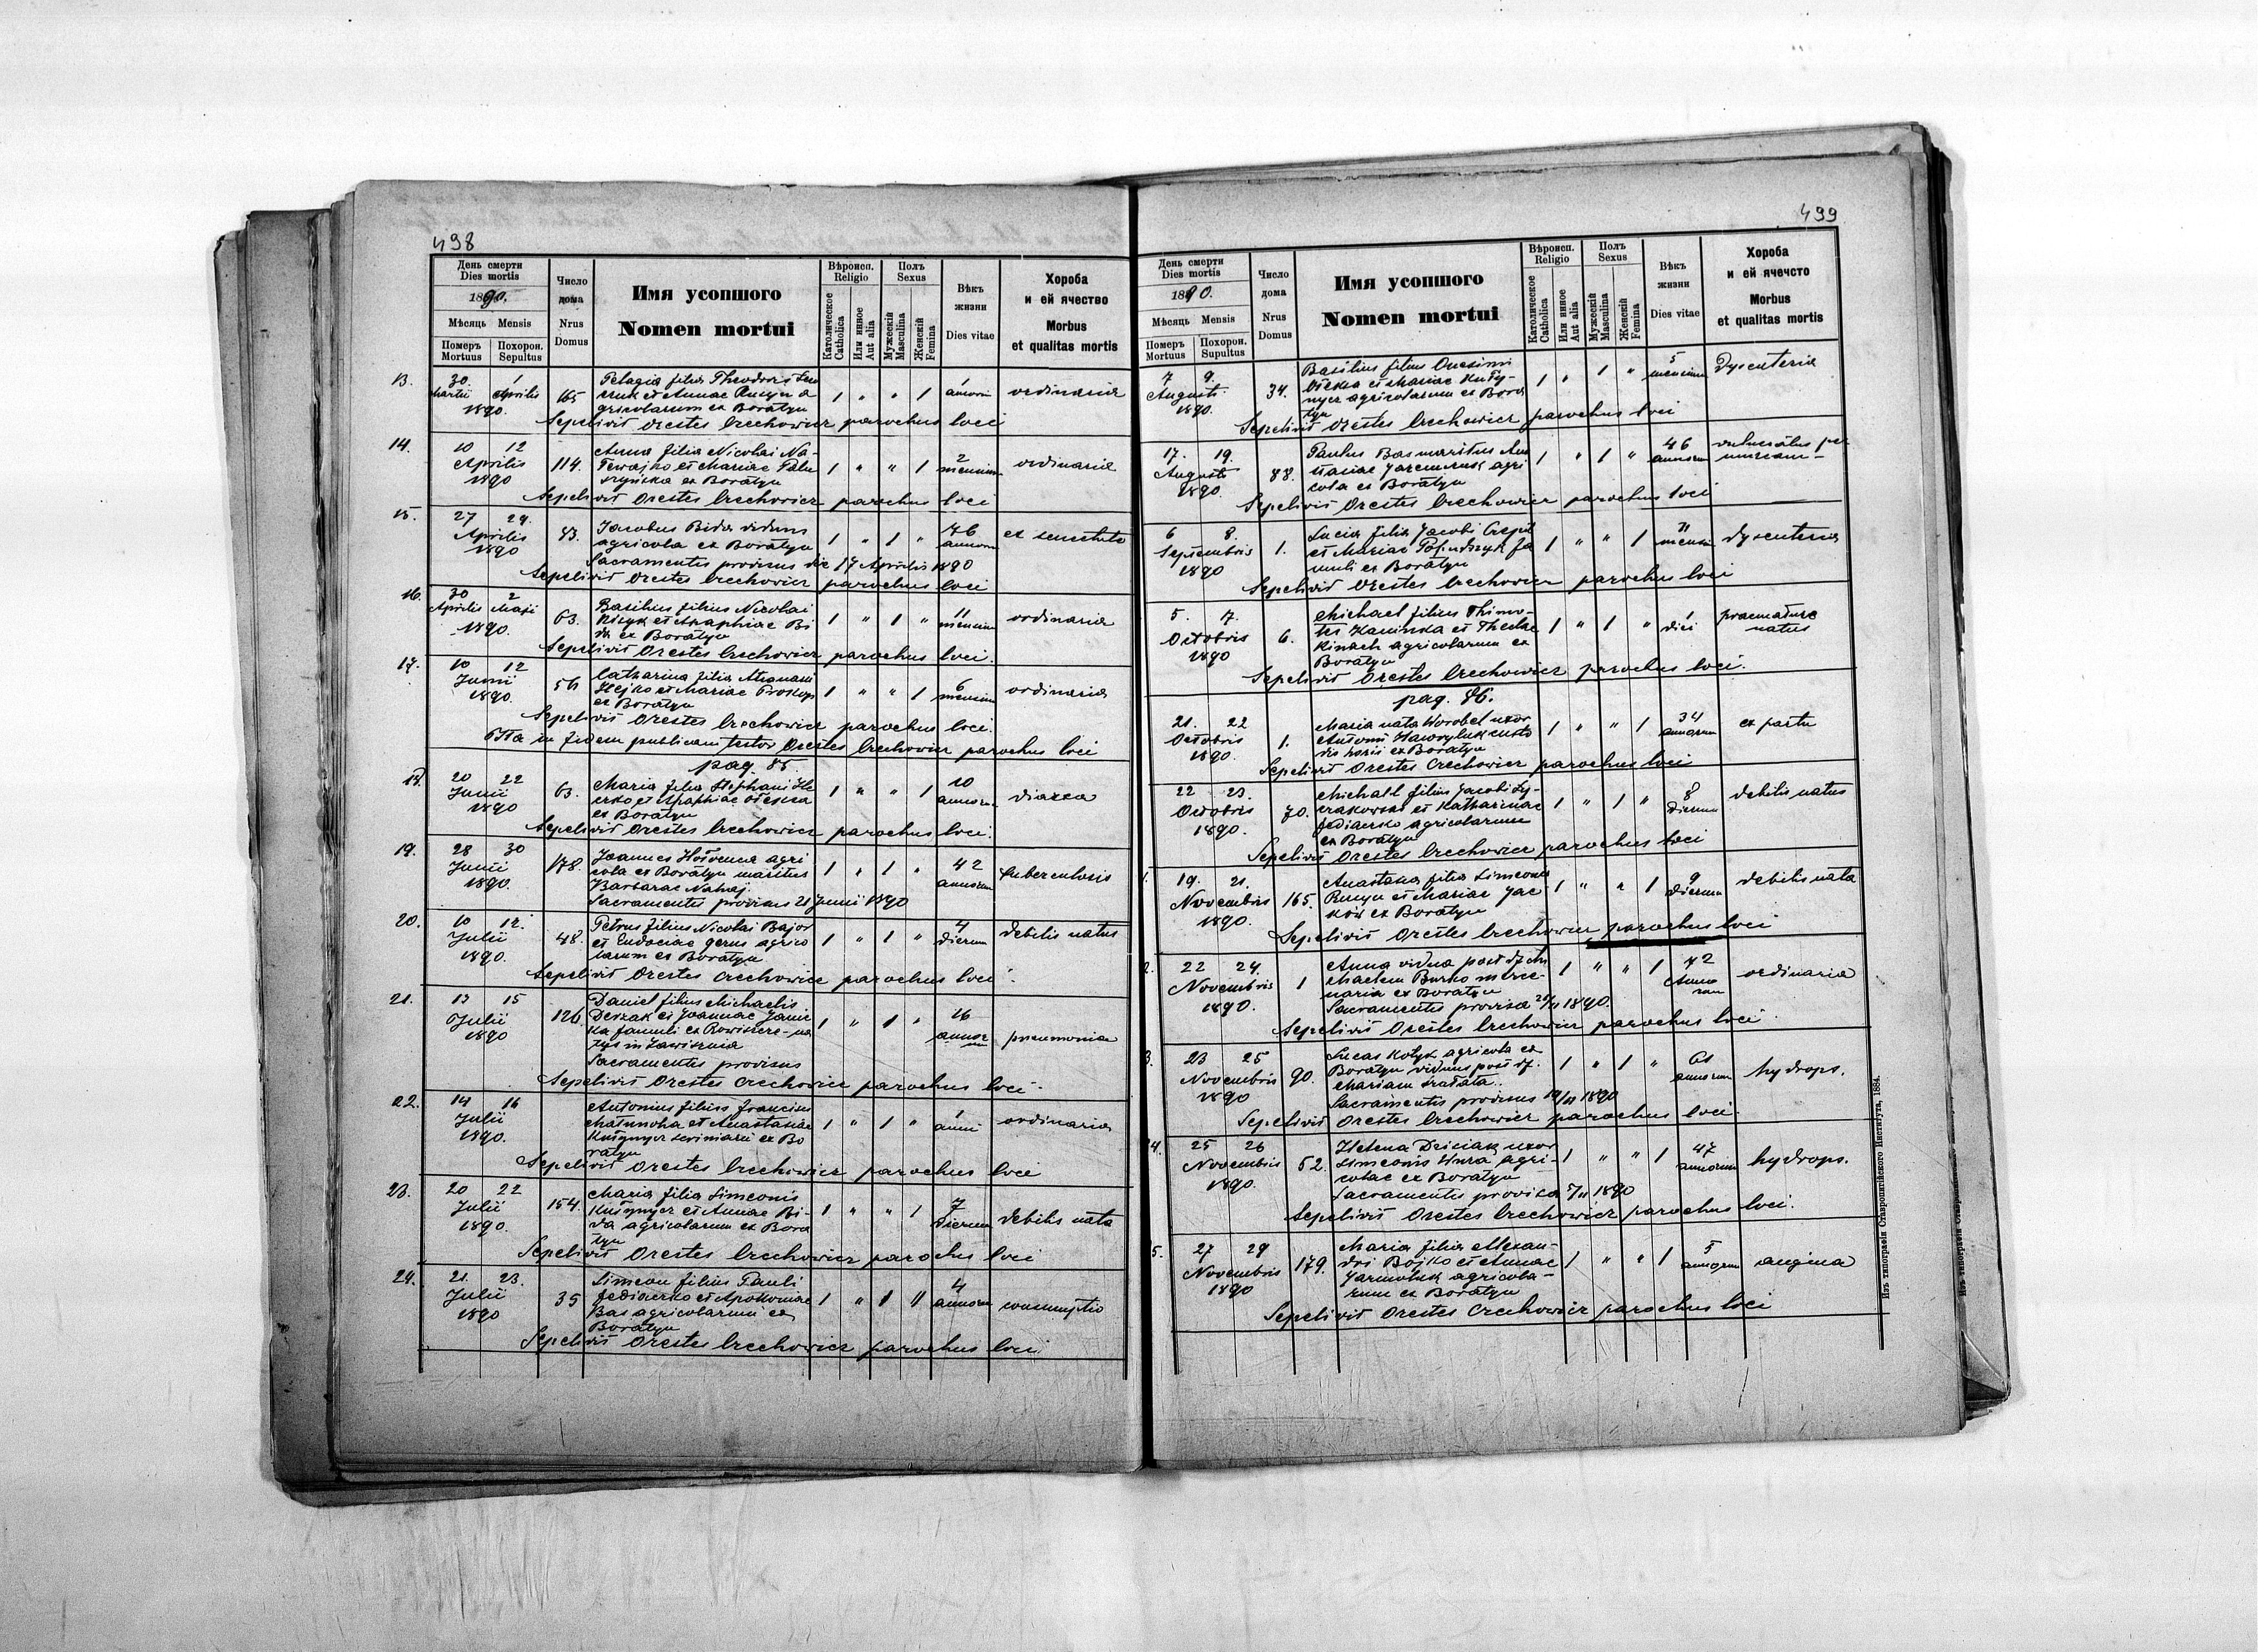 498
День смерти
Dies mortis
1890.
Мѣсяць Mensis
Померъ Mortuus
Похорон. Sepultus
Число дома
Nrus Domus
Имя усопшого
Nomen mortui
Вѣроисп.
Religio
Католическое Catholica
Или инное Aut alia
Полъ
Sexus
Мужескій Masculina
Женскій Femina
Вѣкъ жизни
Dies vitae
Хороба
и ей ячество
Morbus
et qualitas mortis
13. 30 Martii 1 Aprilis 1890. 165 Pelagia filia Theodori
et Annae agricolarum ex Boratyn 1 " " 1 1 ordinaria
Sepelivit Orestes Crechowicz parochus loci
14. 10 12 Aprilis 1890 114. Anna filia Nicolai
et Mariae
ex Boratyn 1 " " 1 2 mensium ordinaria
Sepelivit Orestes Crechowicz parochus loci
15. 27 29. Aprilis 1890 Jacobus Bida viduus
agricola ex Boratyn 1 " 1 " 76 annorum ex senectute
Sacramentis provisus die 17 Aprilis 1890
Sepelivit Orestes Crechowicz parochus loci
16. 30 Aprilis 2 Maji 1890. 63. Basilius filius Nicolai
et Agaphiae Bi
da ex Boratyn 1 " 1 " 11 mensium ordinaria
Sepelivit Orestes Crechowicz parochus loci.
17. 10 12 Junii 1890. Catharina filia
et Mariae Prokop
ex Boratyn 1 " " 1 6 mensium ordinaria
Sepelivit Orestes Crechowicz parochus loci.
Ita in fidem publicam testor Orestes Crechowicz parochus loci
pag. 85.
18. 20 22 Junii 1890 63. Maria filia Stephani
et Agaphiae
ex Boratyn 1 " " 1 10 annorum
Sepelivit Orestes Crechowicz parochus loci.
19. 28 30 Junii 1890. 178. Joannes agri
cola ex Boratyn maritus
Barbarae
Sacramentis provisus 21 Junii 1890 1 " 1 " 42 annorum tuberculosis
20. 10 12. Julii 1890. 48. Petrus filius Nicolai Bajor
et Eudociae agrico
larum ex Boratyn 1 " 1 " 4 dierum debilis natus
Sepelivit Orestes Crechowicz parochus loci.
21. 13 15 Julii 1890 126. Daniel filius Michaelis
Derzak et Joannae
famuli ex
Sacramentis provisus 1 " 1 " 16 annorum pneumonia
Sepelivit Orestes Crechowicz parochus loci.
22. 14 16 Julii 1890. Antonius filius Francisci
et Anastasiae
ex Bo
ratyn 1 " 1 " 1 anni ordinaria
Sepelivit Orestes Crechowicz parochus loci
23. 20 22 Julii 1890. 154. Maria filia Simeonis
Kusznyer et Annae Bi-
da agricolarum ex Bora
tyn 1 " " 1 7 dierum debilis nata
Sepelivit Orestes Crechowicz parochus loci
24. 21. 23. Julii 1890 35 Simeon filius Pauli
Fediaczko et Apoloniae
Bas agricolarum ex
Boratyn 1 " 1 " 4 annorum consumptio
Sepelivit Orestes Crechowicz parochus loci
499
День смерти
Dies mortis
1890.
Мѣсяць Mensis
Померъ Mortuus
Похорон. Supultus
Число дома
Nrus Domus
Имя усопшого
Nomen mortui
Вѣроисп.
Religio
Католическое Catholica
Или инное Aut alia
Полъ
Sexus
Мужескій Masculina
Женскій Femina
Вѣкъ жизни
Dies vitae
Хороба
и ей ячечсто
Morbus
et qualitas mortis
7 9. Augusti 1890. 34. Basilius filius Onesimi
et Mariae
agricolarum ex Bora
tyn 1 " 1 " 5 mensium Dysenteria
Sepelivit Orestes Crechowicz parochus loci
17. 19. Augusti 1890. 88. Paulus Bas maritus Ana
stasiae Jaremczuk agri
cola ex Boratyn 1 " 1 " 46 annorum vulneratus
Sepelivit Orestes Crechowicz parochus loci
6 8. Septembris 1890 1. Lucia filia Jacobi
et Mariae fa
muli ex Boratyn 1 " " 1 dysenteria
Sepelivit Orestes Crechowicz parochus loci
5. 7. Octobris 1890 6. Michael filius Thimo-
tei Kaminka et Theclae
Kinach agricolarum ex
Boratyn 1 " 1 " 1 diei praemature natus
Sepelivit Orestes Crechowicz parochus loci.
pag. 86.
21. 22 Octobris 1890. 1. Maria nata Worobel uxor
Antonii Hawryluk custo
dis ex Boratyn 1 " " 1 34 annorum ex partu
Sepelivit Orestes Crechowicz parochus loci
22 23. Octobris 1890. 70. Michael filius Jacobi
et Katharinae
Fediaczko agricolarum
ex Boratyn 1 " 1 " 8 dierum debilis natus
Sepelivit Orestes Crechowicz parochus loci
1. 19. 21. Novembris 1890. 165. Anastasia filia Simeonis
et Mariae Jac
ków ex Boratyn 1 " " 1 9 dierum debilis nata
Sepelivit Orestes Crechowicz parochus loci
2. 22 24. Novembris 1890. 1 Anna vidua post
Burko merce-
naria ex Boratyn
Sacramentis provisa 1890. 1 " " 1 72 Annorum ordinaria
Sepelivit Orestes Crechowicz parochus loci.
3. 23 25 Novembris 1890 90. Lucas Kotyk agricola ex
Boratyn viduus post
Mariam
Sacramentis provisus 1890 1 " 1 " 61 annorum hydrops.
Sepelivit Orestes Crechowicz parochus loci.
4. 25 26 Novembris 1890. 62. Helena Dziciak uxor
Simeonis agri-
colae ex Boratyn
Sacramentis provisa 1890 1 " " 1 47 annorum hydrops.
Sepelivit Orestes Crechowicz parochus loci.
5. 27 29 Novembris 1890 179. Maria filia Alexan-
dri Bojko et Annae
Jarmoluk agricola-
rum ex Boratyn 1 " " 1 5 annorum angina
Sepelivit Orestes Crechowicz parochus loci
Изъ типографіи Ставропигійского Института, 1884.
Изъ типографіи